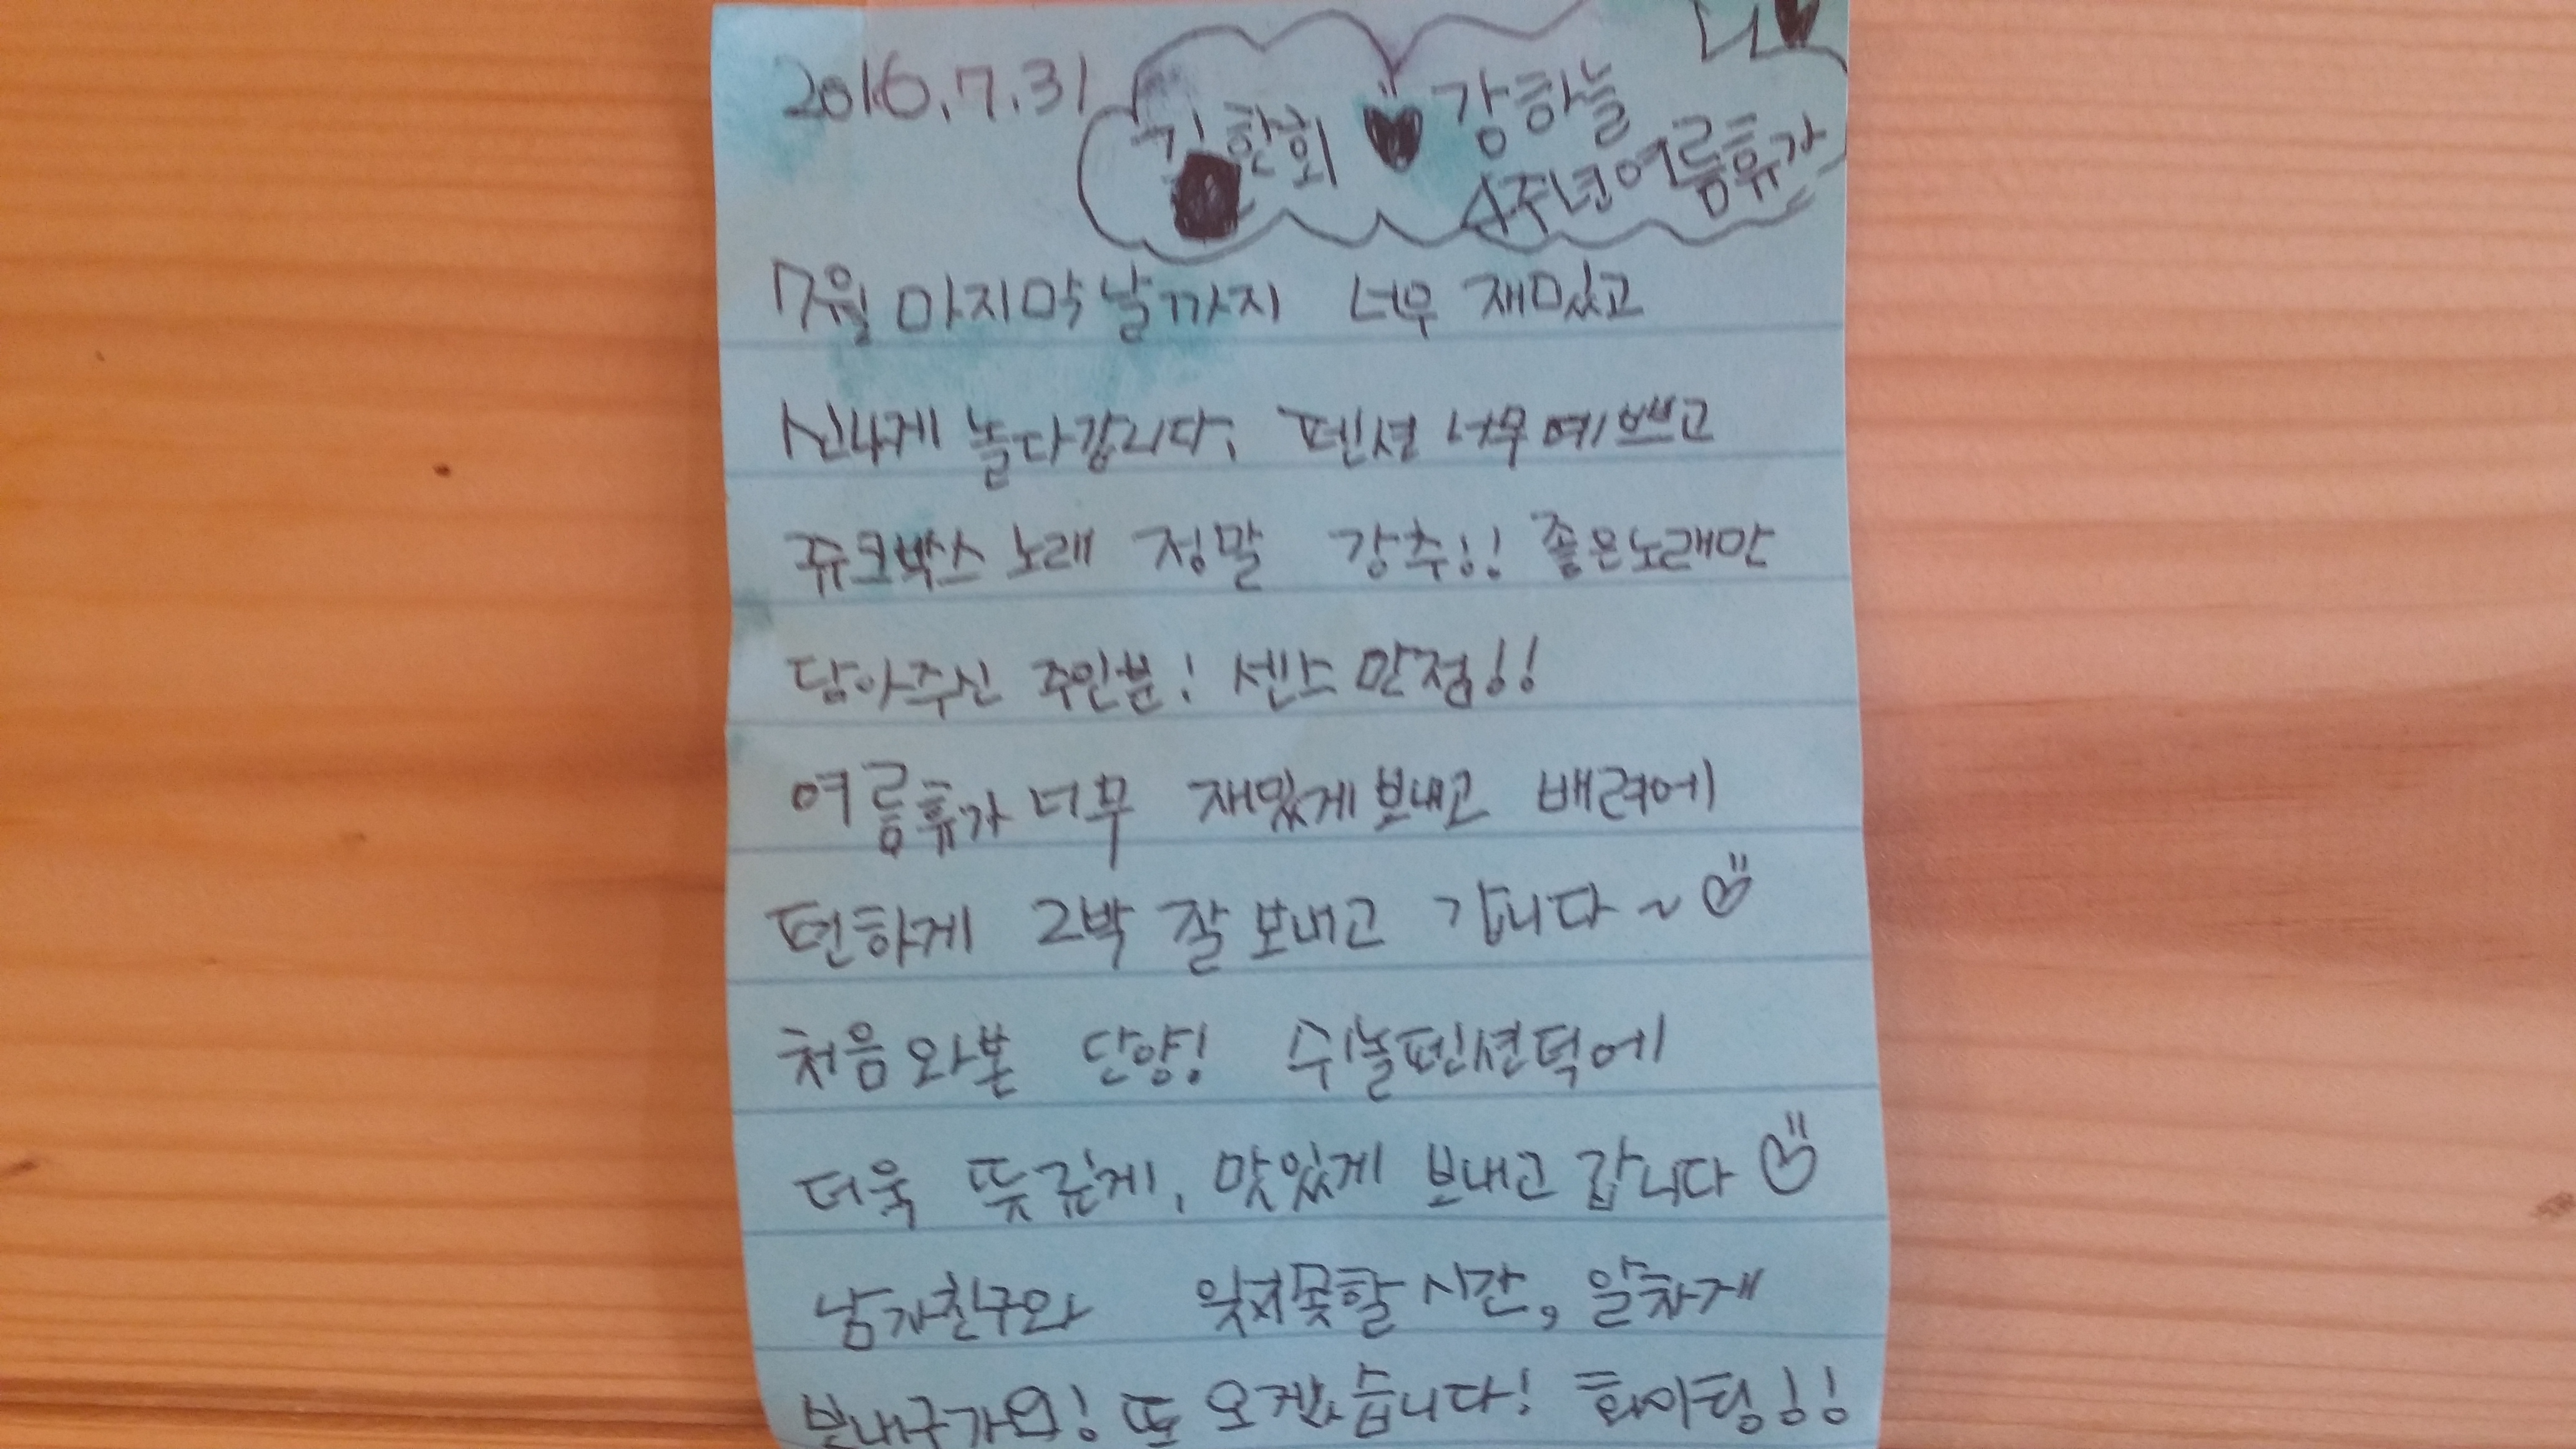 2016.7.31
김환희 ♥ 강하늘
4주년여름휴가
7월 마지막 날까지 너무 재밌고
신나게 놀다갑니다! 펜션 너무 예쁘고
쥬크박스 노래 정말 강추!! 좋은노래만
담아주신 주인분! 센스 만점!!
여름휴가 너무 재밌게 보내고 배려에
편하게 2박 잘 보내고 갑니다~
처음 와본 단양! 쉬놀펜션덕에
더욱 뜻깊게, 맛있게 보내고 갑니다
남자친구와 잊지못할 시간, 알차게
보내구가요! 또 오겠습니다! 화이팅!!